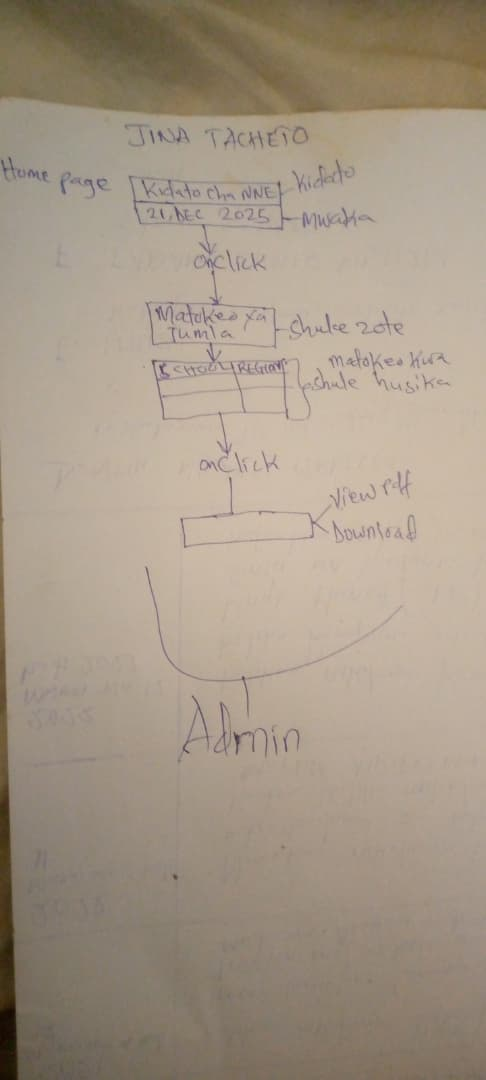 JINA TACHETO
Home page
Kidato cha NNE
Kidato
21, DEC 2025
Mwaka
onclick
Matokeo ya
Jumla
Shule zote
SCHOOL
matokeo kwa
shule husika
onClick
View pdf
Download
Admin